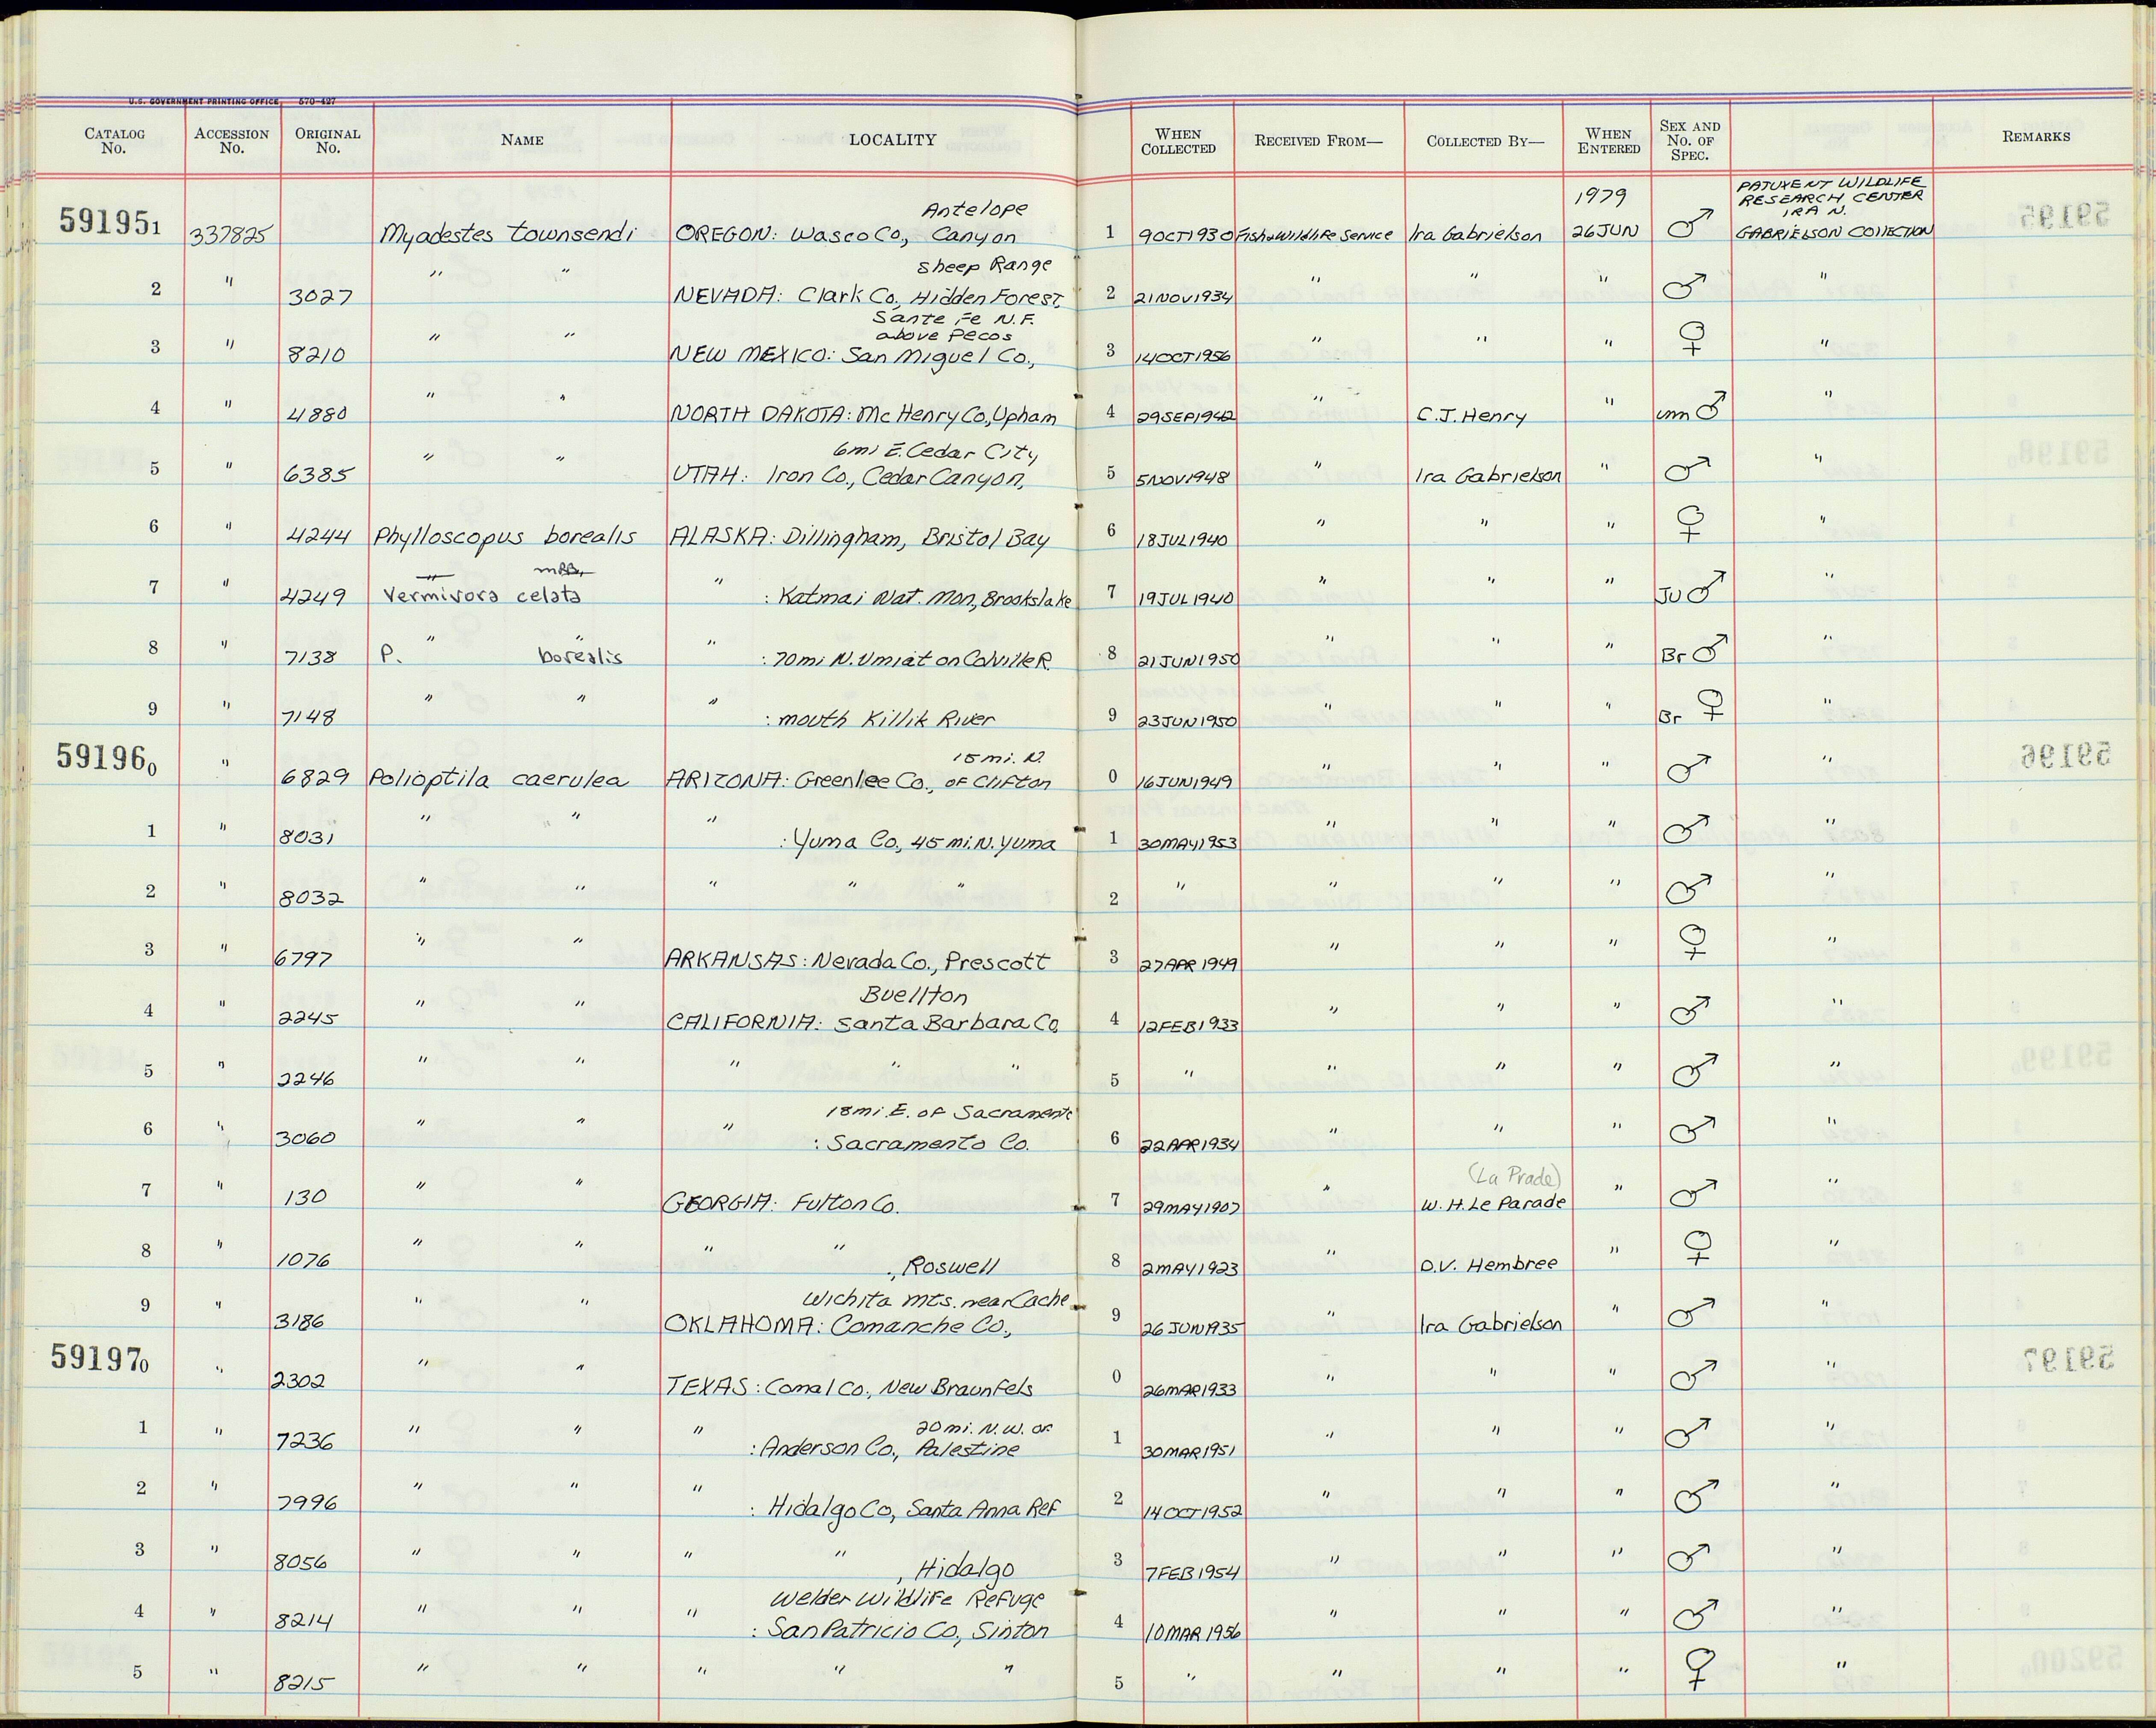 U.S. GOVERNMENT PRINTING OFFICE 570-427
CATALOG No. ACCESSION No. ORIGINAL No. NAME LOCALITY WHEN COLLECTED RECEIVED FROM— COLLECTED BY— WHEN ENTERED SEX AND No. OF SPEC. REMARKS
591951 337825 Myadestes townsendi OREGON: Wasco Co., Antelope Canyon 1 9OCT1930 Fish & Wildlife Service Ira Gabrielson 1979 26JUN ♂ PATUXENT WILDLIFE RESEARCH CENTER IRA N. GABRIELSON COllECTION
2 " 3027 " " NEVADA: Clark Co., Sheep Range Hidden Forest 2 21NOV1934 " " " ♂ "
3 " 8210 " " NEW MEXICO: San Miguel Co., Sante Fe N.F. above Pecos 3 14OCT1956 " " " ♀ "
4 " 4880 " " NORTH DAKOTA: McHenry Co., Upham 4 29SEP1942 " C.J. Henry " imm ♂ "
5 " 6385 " " UTAH: Iron Co., Cedar Canyon, 6mi E. Cedar City 5 5NOV1948 " Ira Gabrielson " ♂ "
6 " 4244 Phylloscopus borealis ALASKA: Dillingham, Bristol Bay 6 18JUL1940 " " " ♀ "
7 " 4249 Vermivora celata " : Katmai Nat. Mon., Brookslake 7 19JUL1940 " " " Ju ♂ "
8 " 7138 P. " borealis " : 70mi N. Umiat on Colville R. 8 21JUN1950 " " " Br ♂ "
9 " 7148 " " " : mouth Killik River 9 23JUN1950 " " " Br ♀ "
591960 " 6829 Polioptila caerulea ARIZONA: Greenlee Co., 15mi. N. of Clifton 0 16JUN1949 " " " ♂ "
1 " 8031 " " " : Yuma Co., 45mi. N. Yuma 1 30MAY1953 " " " ♂ "
2 " 8032 " " " " " 2 " " " " ♂ "
3 " 6797 " " ARKANSAS: Nevada Co., Prescott 3 27APR1949 " " " ♀ "
4 " 2245 " " CALIFORNIA: Santa Barbara Co. Buellton 4 12FEB1933 " " " ♂ "
5 " 2246 " " " " " 5 " " " " ♂ "
6 " 3060 " " " : Sacramento Co. 18mi. E. of Sacramento 6 22APR1934 " " " ♂ "
7 " 130 " " GEORGIA: Fulton Co. 7 29MAY1907 " (La Prade) W. H. Le Parade " ♂ "
8 " 1076 " " " " , Roswell 8 2MAY1923 " D.V. Hembree " ♀ "
9 " 3186 " " OKLAHOMA: Comanche Co., Wichita Mts. near Cache 9 26JUN1935 " Ira Gabrielson " ♂ "
591970 " 2302 " " TEXAS: Comal Co., New Braunfels 0 26MAR1933 " " " ♂ "
1 " 7236 " " " : Anderson Co., 20mi. N.W. of Palestine 1 30MAR1951 " " " ♂ "
2 " 7996 " " " : Hidalgo Co., Santa Anna Ref 2 14OCT1952 " " " ♂ "
3 " 8056 " " " " , Hidalgo 3 7FEB1954 " " " ♂ "
4 " 8214 " " " : San Patricio Co., Sinton Welder Wildlife Refuge 4 10MAR1956 " " " ♂ "
5 " 8215 " " " " " 5 " " " " ♀ "